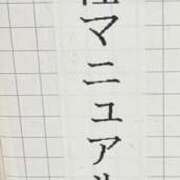 マニュア